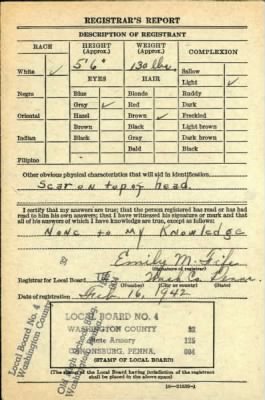 REGISTRAR'S REPORT
DESCRIPTION OF REGISTRANT
RACE HEIGHT (Approx.) WEIGHT (Approx.) COMPLEXION
White ✓ 5' 6" 130 lbs. Sallow
EYES HAIR Light ✓
Negro Blue Blonde Ruddy
Gray ✓ Red Dark
Oriental Hazel Brown ✓ Freckled
Brown Black Light brown
Indian Black Gray Dark brown
Bald Black
Filipino
Other obvious physical characteristics that will aid in identification
Scar on top of head.
I certify that my answers are true; that the person registered has read or has had
read to him his own answers; that I have witnessed his signature or mark and that
all of his answers of which I have knowledge are true, except as follows:
None to my knowledge
Emily M. Fife
(Signature of registrar)
Registrar for Local Board Wash Co. Penna.
(Number) (City or county) (State)
Date of registration Feb. 16, 1942
Local Board No. 4
Washington County
LOCAL BOARD NO. 4
WASHINGTON COUNTY 82
State Armory 125
CANONSBURG, PENNA. 004
(STAMP OF LOCAL BOARD)
(The stamp of the Local Board having jurisdiction of the registrant
shall be placed in the above space)